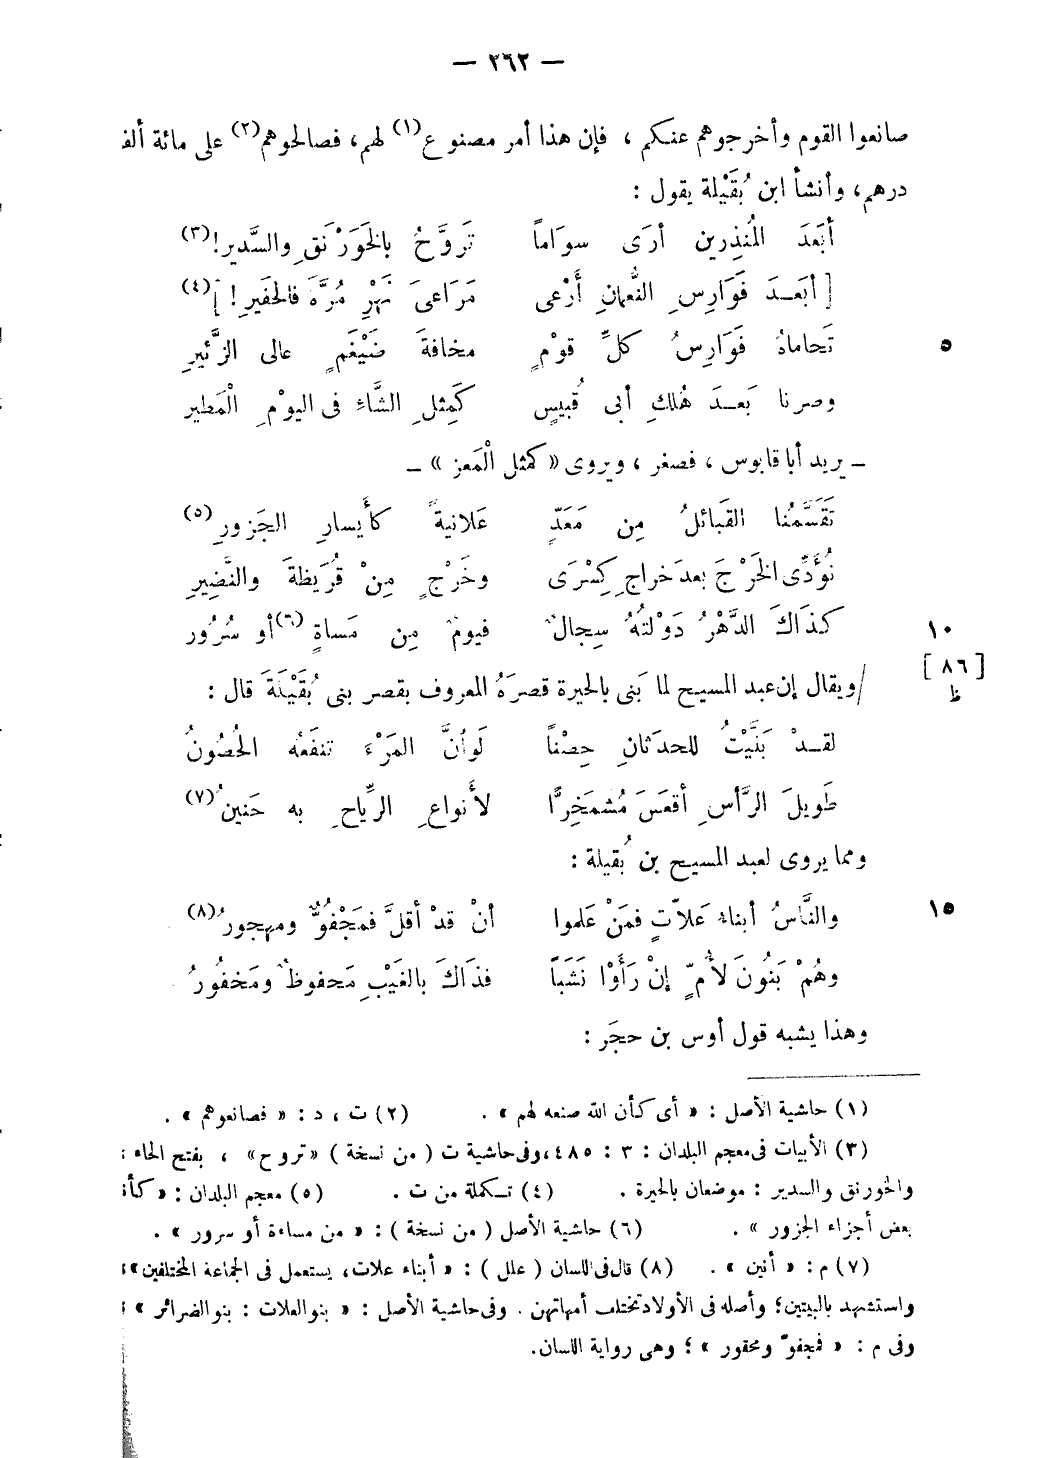 — ٢٦٢ —
صانعوا القوم وأخرجوهم عنكم ، فإن هذا أمر مصنوع(١) لهم، فصالحوهم(٢) على مائة ألف
درهم، وأنشأ ابن بُقَيْلة يقول :
أبَعدَ المُنذِرين أرَى سوَاماً تَروَّحُ بالخَوَرْنَقِ والسَّدير!(٣)
[ أبَعــدَ فَوَارِسِ النُّعمانِ أَرْعى مَرَاعىَ نَهْرِ مُرَّةَ فالحَفيرِ ! ](٤)
تَحاماهُ فَوَارِسُ كلِّ قوْمٍ مخافةَ ضَيْغَمٍ عالى الزَّئيرِ
٥
وصرنا بَعــدَ هُلكِ أبى قُبيسٍ كَمِثلِ الشَّاءِ فى اليوْمِ الْمَطير
ـ يريد أبا قابوس ، فصغر ، ويروى « كمثل الْمَعز » ـ
تَقَسَّمُنا القَبائلُ مِن مَعَدٍّ عَلانيةً كأَيسارِ الجَزورِ(٥)
نُؤَدِّى الخَرْجَ بعدَ خراجِ كِسْرَى وخَرْجٍ مِنْ قُرَيظةَ والنَّضِيرِ
كذَاكَ الدَّهْرُ دَوْلتُهُ سِجالٌ فيومٌ مِن مَساةٍ(٦) أو سُرُور
١٠
[ ٨٦ ]
ظ
/ويقال إن عبد المسيح لما بَنى بالحيرة قصرَهُ المعروف بقصر بنى بُقَيْلَةَ قال :
لقــدْ بَنَّيْتُ للحدَثانِ حِصْناً لَوأنَّ المَرْءَ تنفَعُه الحُصُونُ
طَويلَ الرَّأسِ أقعَسَ مُشمَخِرًّا لأَنواعِ الرِّياحِ به حَنينُ(٧)
ومما يروى لعبد المسيح بن بُقيلة :
والنَّاسُ أبناءُ عَلاّتٍ فمَنْ عَلموا أنْ قدْ أقلَّ فمَجْفُوٌّ ومهجورُ(٨)
١٥
وهُمْ بَنُونَ لأُمٍّ إنْ رَأَوْا نَشَبًا فذاكَ بالغَيْبِ مَحفوظٌ ومَخفُورُ
وهذا يشبه قول أوس بن حجَر :
(١) حاشية الأصل : « أى كأن الله صنعه لهم » . (٢) ت ، د : « فصانعوهم » .
(٣) الأبيات فى معجم البلدان : ٣ : ٤٨٥ ، وفى حاشية ت ( من نسخة ) « تروح » ، بفتح الحاء ؛
والخورنق والسدير : موضعان بالحيرة . (٤) تكملة من ت . (٥) معجم البلدان : «
بعض أجزاء الجزور » . (٦) حاشية الأصل ( من نسخة ) : « من مساءة أو سرور » .
(٧) م : « أنين » . (٨) قال فى اللسان ( علل ) : « أبناء علات، يستعمل فى الجماعة المختلفين »؛
واستشهد بالبيتين؛ وأصله فى الأولاد تختلف أمهاتهن . وفى حاشية الأصل : « بنو العلات : بنو الضرائر » ؛
وفى م : « فمجفوّ ومحقور » ؛ وهى رواية اللسان.